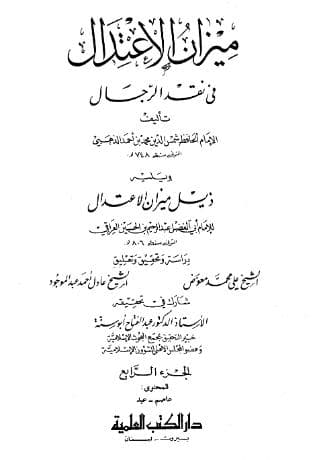 ميزان الاعتدال
في نقد الرجال
تأليف
الإمام الحافظ شمس الدين محمد بن أحمد الذهبي
المتوفى سنة ٧٤٨ هـ
ويليه
ذيل ميزان الاعتدال
للإمام أبي الفضل عبد الرحيم بن الحسين العراقي
المتوفى سنة ٨٠٦ هـ
دراسة وتحقيق وتعليق
الشيخ علي محمد معوض الشيخ عادل أحمد عبد الموجود
شارك في تحقيقه
الأستاذ الدكتور عبد الفتاح أبو سنة
خبير التحقيق بمجمع البحوث الإسلامية
وعضو المجلس الأعلى للشؤون الإسلامية
الجزء الرابع
المحتوى:
عاصم - عبد
دار الكتب العلمية
بيروت - لبنان